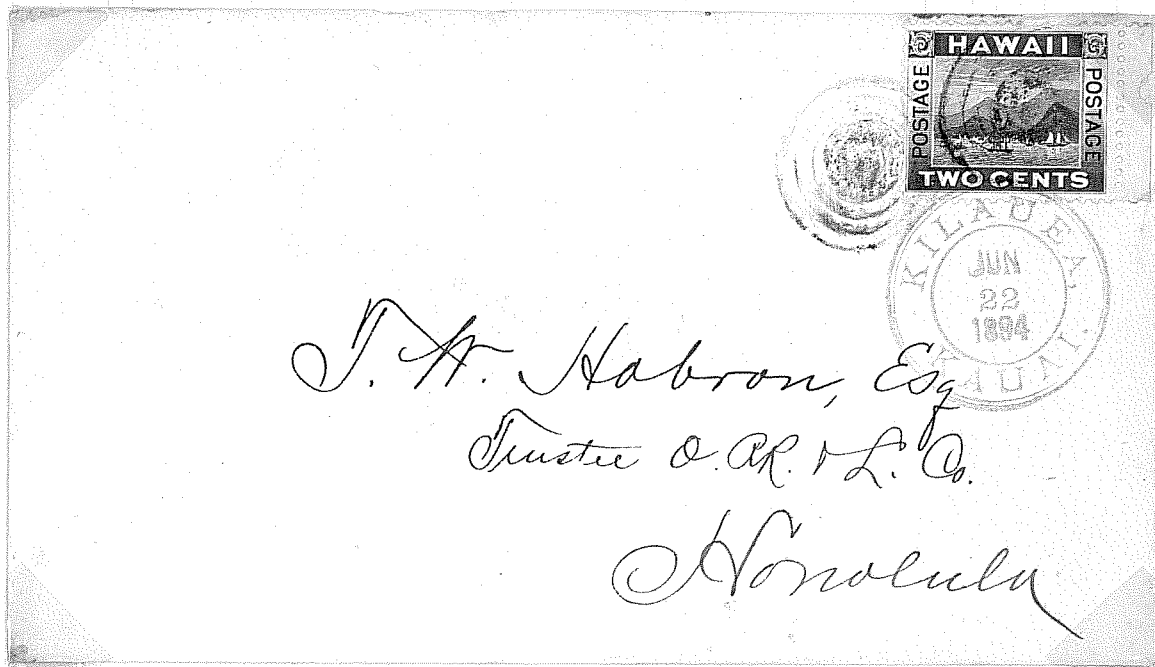 HAWAII
POSTAGE
POSTAGE
TWO CENTS
KILAUEA, KAUAI.
JUN
22
1894
T. W. Hobron, Esq
Trustee O.R. & L. Co.
Honolulu